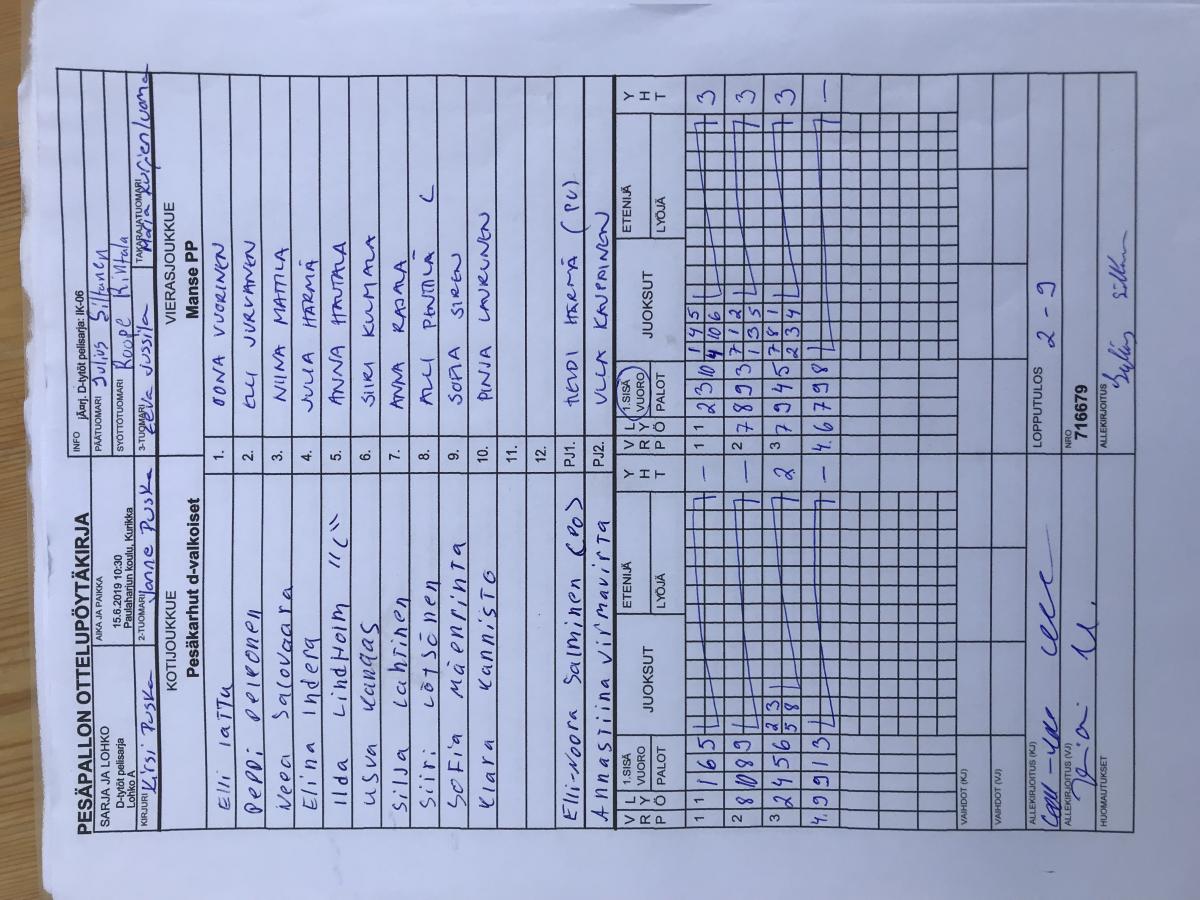 PESÄPALLON OTTELUPÖYTÄKIRJA
SARJA JA LOHKO
D-tytöt pelisarja
Lohko A
AIKA JA PAIKKA
15.6.2019 10:30
Paulaharjun koulu, Kurikka
INFO jäarj. D-tytöt pelisarja: IK-06
PÄÄTUOMARI Julius Siltanen
SYÖTTÖTUOMARI Roope Rintala
KIRJURI Kirsi Puska
2-TUOMARI Janne Puska
3-TUOMARI Eeva Jussila
TAKARAJATUOMARI Maija
KOTIJOUKKUE
Pesäkarhut d-valkoiset
VIERASJOUKKUE
Manse PP
Elli Lattu 1. OONA VUORINEN
Peppi Pelkonen 2. ELLI JURVANEN
Neea Salovaara 3. NIINA MATTILA
Elina Inderä 4. JULIA HÄRMÄ
Ilda Lindholm "(" 5. ANNA HAUTALA
Usva Kangas 6. SIIRI KULMALA
Silja Lahtinen 7. ANNA RAJALA
Siiri Lötjönen 8. ALLI PENTILÄ (
Sofia Mäenrinta 9. SOFIA SIREN
Kiara Kannisto 10. PINJA LAURUNEN
11.
12.
Elli-Noora Salminen (PO) PJ1. HEIDI HÄRMÄ (PV)
Annastiina Virmavirta PJ2. ULLA KAUPAINEN
V R P L Y Ö 1.SISÄ VUORO PALOT JUOKSUT ETENIJÄ LYÖJÄ Y H T V R P L Y Ö 1.SISÄ VUORO PALOT JUOKSUT ETENIJÄ LYÖJÄ Y H T
1 1 1 6 5 – 1 1 2 3 10 1 4 5 4 10 6 3
2 8 10 8 9 – 2 7 8 9 3 7 1 2 1 3 5 3
3 2 4 5 6 2 3 5 8 2 3 7 9 4 5 7 8 1 2 3 4 3
4. 9 9 1 3 – 4. 6 7 9 8 –
VAIHDOT (KJ)
VAIHDOT (VJ)
ALLEKIRJOITUS (KJ)
LOPPUTULOS 2 - 9
ALLEKIRJOITUS (VJ)
NRO
716679
HUOMAUTUKSET
ALLEKIRJOITUS
Julius Siltanen